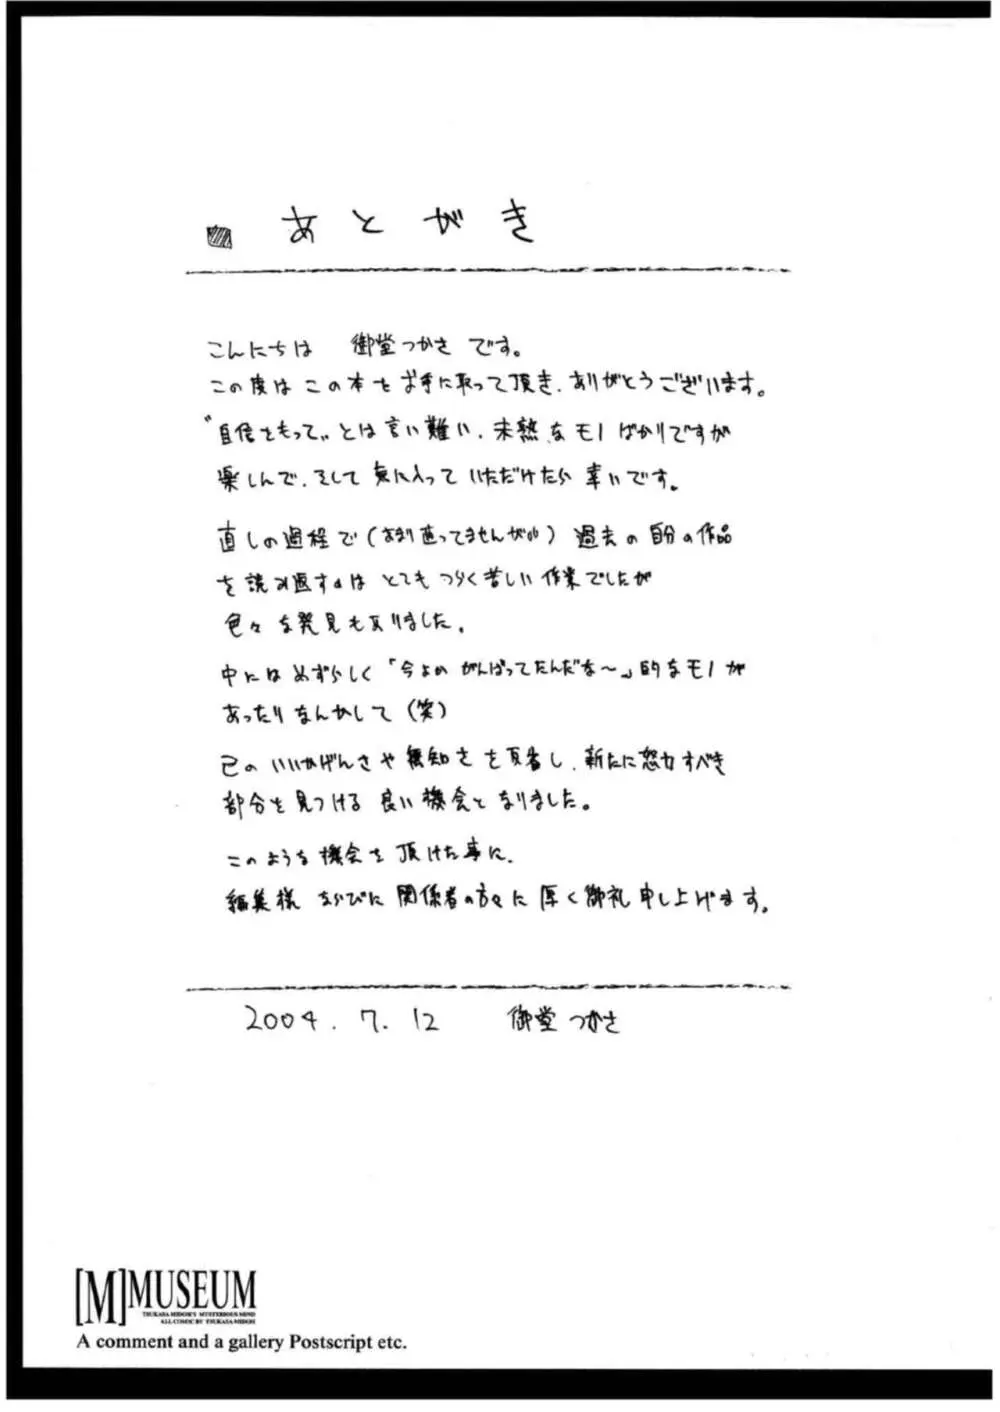 あとがき
こんにちは 御堂つかさ です。
この度は この本を お手に取って頂き、ありがとうございます。
"自信をもって"とは言い難い、未熟なモノばかりですが
楽しんで、そして 気に入って いただけたら 幸いです。
直しの過程で(あまり直ってませんが〃)過去の自分の作品
を読み返すのは とても つらく苦しい 作業でしたが
色々な発見もありました。
中には めずらしく「今よか がんばってたんだな〜」的なモノが
あったりなんかして(笑)
己の いいかげんさや無知さを反省し、新たに努力すべき
部分を見つける 良い機会と なりました。
このような機会を 頂けた事に、
編集様 ならびに 関係者の方々に 厚く御礼申し上げます。
2004.7.12 御堂つかさ
[M]MUSEUM
TSUKASA MIDOH'S MYSTERIOUS MIND
ALL COMIC BY TSUKASA MIDOH
A comment and a gallery Postscript etc.